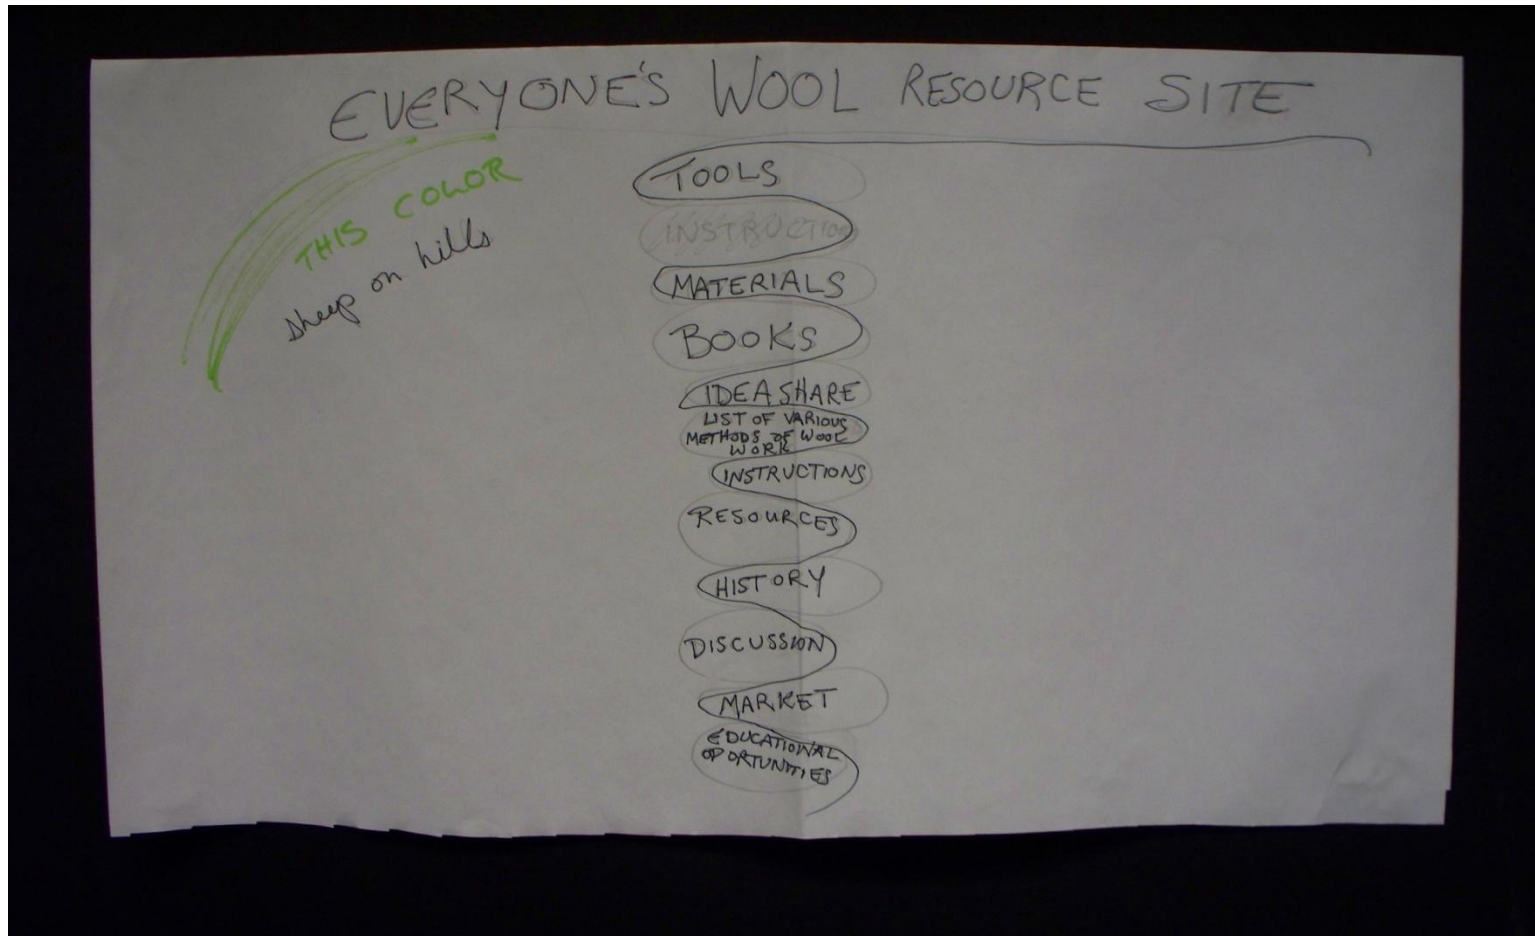 EVERYONE'S WOOL RESOURCE SITE
THIS COLOR
sheep on hills
TOOLS
INSTRUCTION
MATERIALS
BOOKS
IDEA SHARE
LIST OF VARIOUS
METHODS OF WOOL
WORK
INSTRUCTIONS
RESOURCES
HISTORY
DISCUSSION
MARKET
EDUCATIONAL
OPORTUNITIES